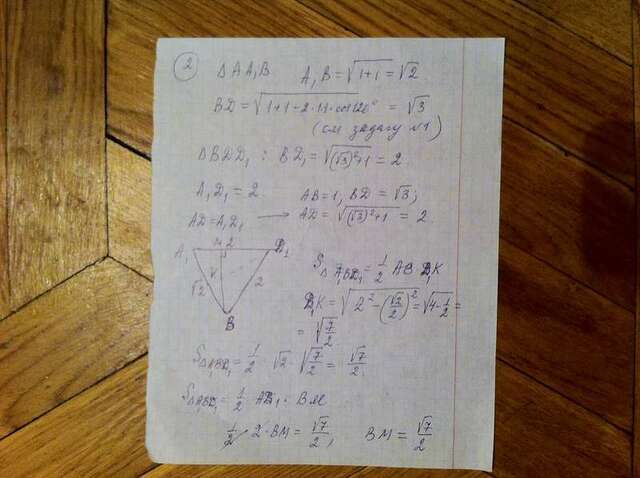 2
△AA₁B A₁B = √(1+1) = √2
BD = √(1+1-2·1·1·cos120°) = √3
(см задачу №1)
△BDD₁ : BD₁ = √((√3)²+1) = 2
A₁D₁ = 2 AB=1, BD = √3;
AD=A₁D₁ → AD = √((√3)²+1) = 2
A₁ M 2 D₁
√2 K 2
B
S△A₁BD₁ = 1/2 AB·D₁K
D₁K = √(2²-(√2/2)²) = √(4-1/2) =
= √(7/2)
S△A₁BD₁ = 1/2 · √2 · √(7/2) = √7/2
S△A₁BD₁ = 1/2 AD₁ · BM
1/2 · 2·BM = √7/2; BM = √7/2